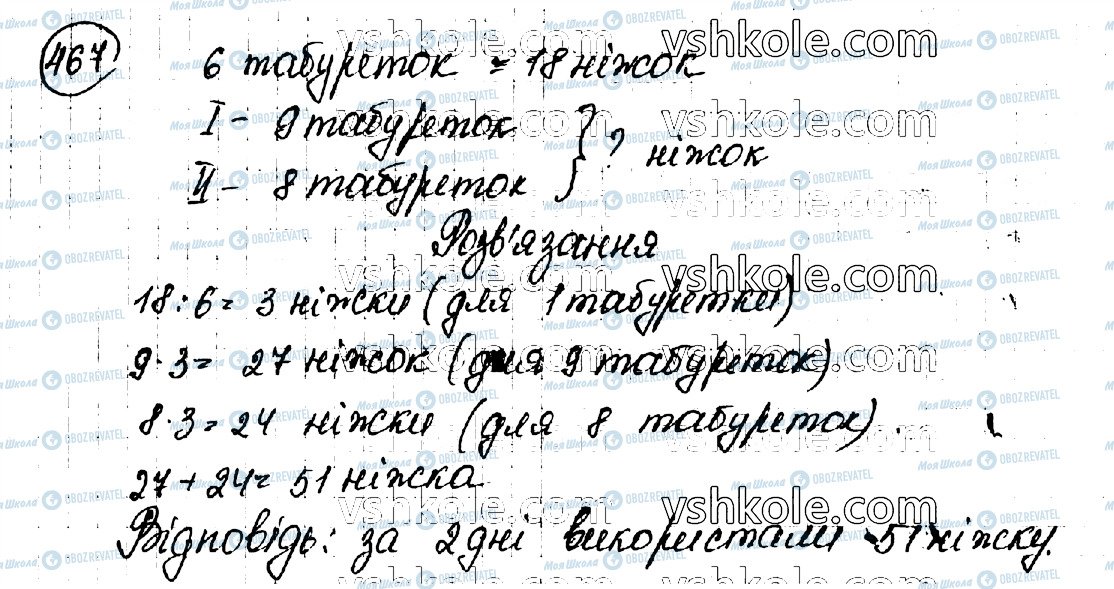 467
6 табуреток = 18 ніжок
I - 9 табуреток
II - 8 табуреток } ? ніжок
Розв'язання
18 : 6 = 3 ніжки (для 1 табуретки)
9 · 3 = 27 ніжок (для 9 табуреток)
8 · 3 = 24 ніжки (для 8 табуреток).
27 + 24 = 51 ніжка
Відповідь: за 2 дні використали 51 ніжку.